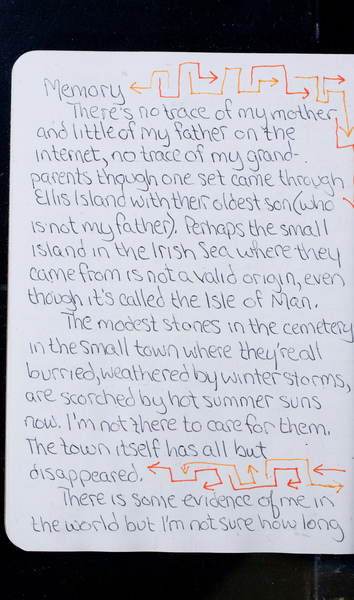 Memory
There's no trace of my mother
and little of my father on the
internet, no trace of my grand-
parents though one set came through
Ellis Island with their oldest son (who
is not my father). Perhaps the small
island in the Irish Sea where they
came from is not a valid origin, even
though it's called the Isle of Man.
The modest stones in the cemetery
in the small town where they're all
burried, weathered by winter storms,
are scorched by hot summer suns
now. I'm not there to care for them.
The town itself has all but
disappeared.
There is some evidence of me in
the world but I'm not sure how long